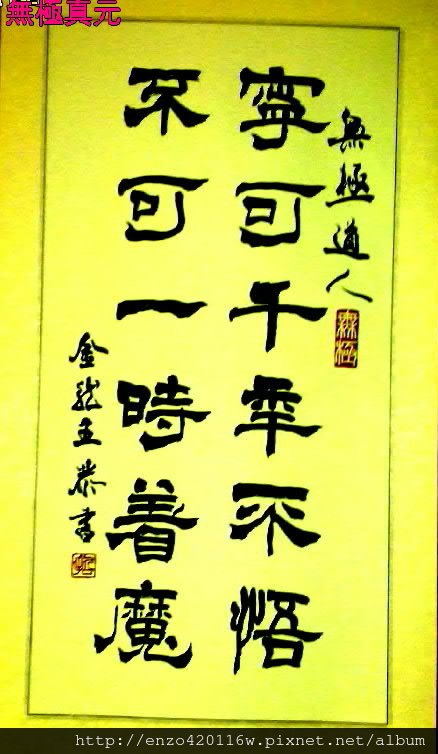 無極真元
無極道人
無極
寧可千年不悟
不可一時着魔
金龍王恭書
http://enzo420116w.pixnet.net/album